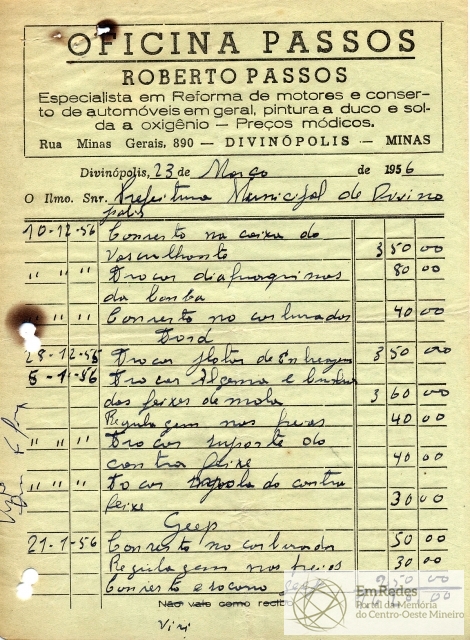 OFICINA PASSOS
ROBERTO PASSOS
Especialista em Reforma de motores e conser-
to de automóveis em geral, pintura a duco e sol-
da a oxigênio — Preços módicos.
Rua Minas Gerais, 890 — DIVINÓPOLIS — MINAS
Divinópolis, 23 de Março de 1956
O Ilmo. Snr. Prefeitura Municipal de Divino
polis
10-12-56 Conserto na caixa do
350 00
" " " Trocar diafragmas 80 00
da bomba
" " " Conserto no carburador 40 00
Ford
28-12-55 Trocar de Embreagem 350 00
5-1-56 Trocar e
dos feixes de mola 360 00
Regulagem nos freios 40 00
" " " Trocar suporte do
contra feixe 40 00
" " " do contra
feixe 30 00
Geep
21-1-56 Conserto no carburador 50 00
Regulagem nos freios 30 00
Conserto e 950 00
Não vale como recibo
EmRedes
Portal da Memória
do Centro-Oeste Mineiro